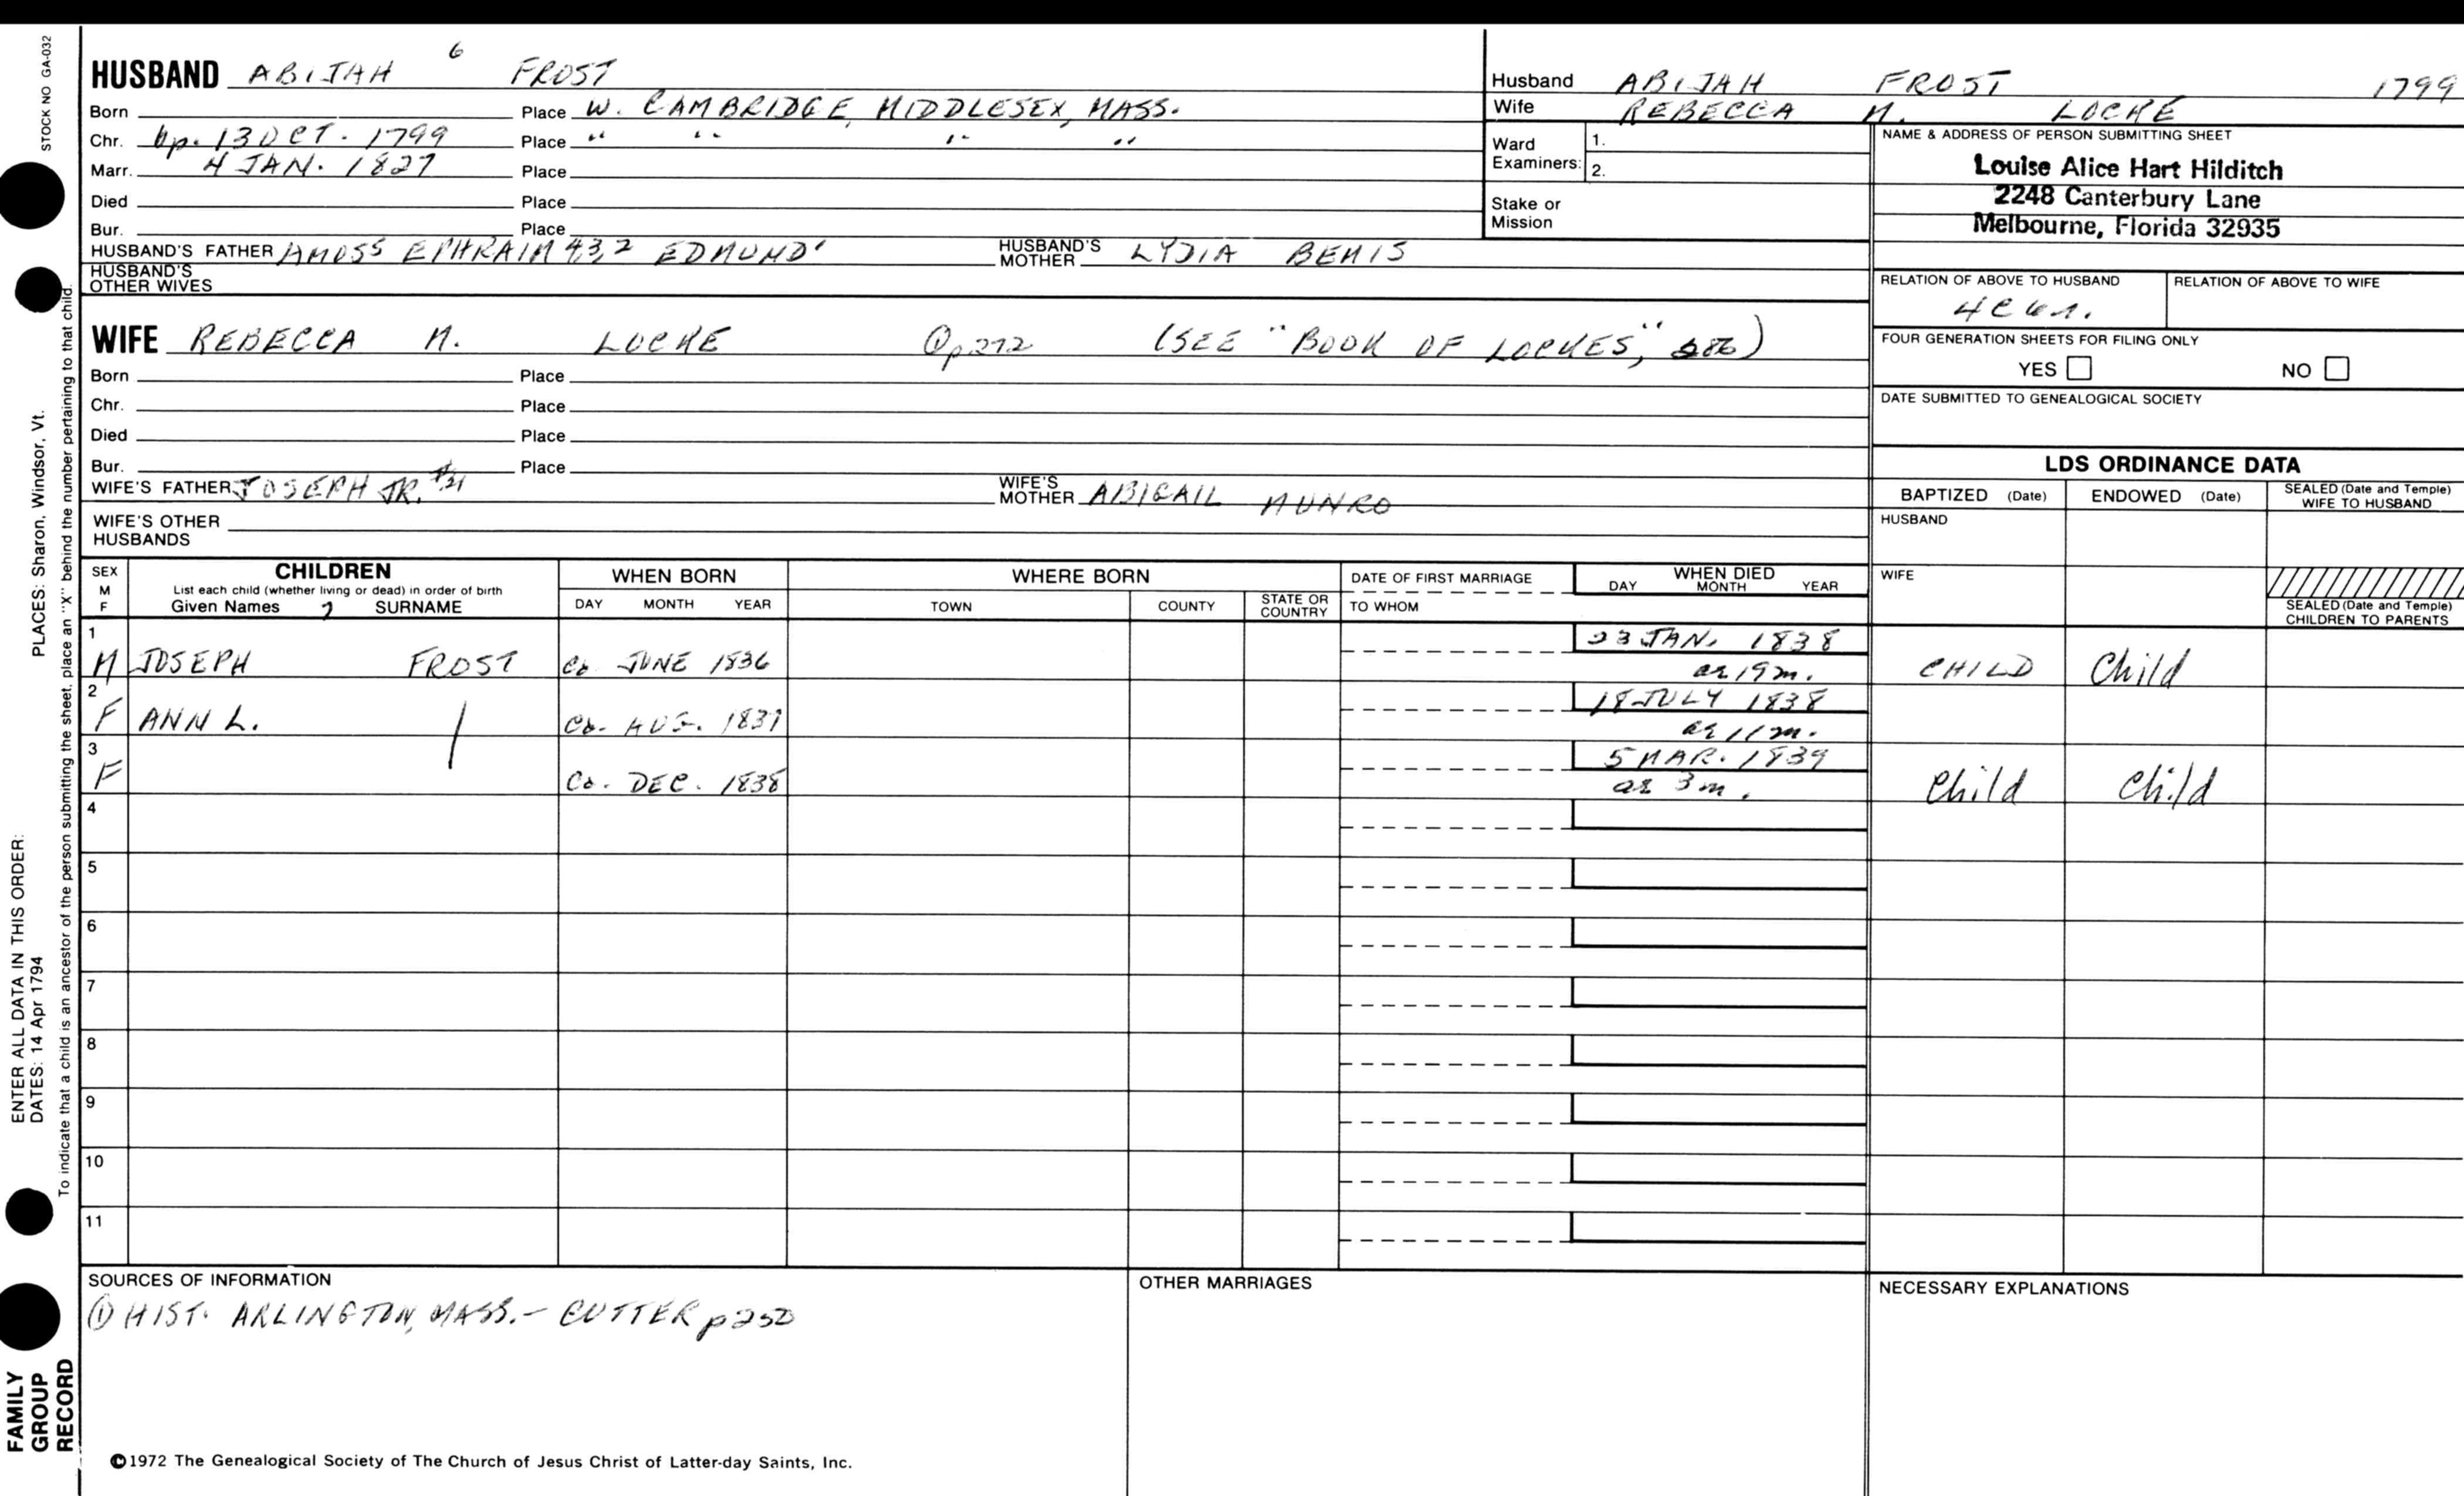 STOCK NO GA-032
HUSBAND ABIJAH 6 FROST
Born Place W. CAMBRIDGE, MIDDLESEX, MASS.
Chr. bp. 13 OCT. 1799 Place " " " "
Marr. 4 JAN. 1827 Place
Died Place
Bur. Place
HUSBAND'S FATHER AMOS5 EPHRAIM 4,3,2 EDMUND' HUSBAND'S MOTHER LYDIA BEMIS
HUSBAND'S OTHER WIVES
Husband ABIJAH FROST 1799
Wife REBECCA M. LOCKE
Ward Examiners: 1.
2.
Stake or Mission
NAME & ADDRESS OF PERSON SUBMITTING SHEET
Louise Alice Hart Hilditch
2248 Canterbury Lane
Melbourne, Florida 32935
RELATION OF ABOVE TO HUSBAND RELATION OF ABOVE TO WIFE
FOUR GENERATION SHEETS FOR FILING ONLY
YES NO
DATE SUBMITTED TO GENEALOGICAL SOCIETY
WIFE REBECCA M. LOCKE p272 (SEE "BOOK OF LOCKES,"
Born Place
Chr. Place
Died Place
Bur. Place
WIFE'S FATHER JOSEPH JR. WIFE'S MOTHER ABIGAIL MUNRO
WIFE'S OTHER HUSBANDS
LDS ORDINANCE DATA
BAPTIZED (Date) ENDOWED (Date) SEALED (Date and Temple) WIFE TO HUSBAND
HUSBAND
WIFE
SEALED (Date and Temple) CHILDREN TO PARENTS
SEX M F CHILDREN WHEN BORN WHERE BORN DATE OF FIRST MARRIAGE WHEN DIED
List each child (whether living or dead) in order of birth
Given Names 7 SURNAME DAY MONTH YEAR TOWN COUNTY STATE OR COUNTRY TO WHOM DAY MONTH YEAR
1 23 JAN. 1838
M JOSEPH FROST Ca JUNE 1836 ae 19 m. CHILD Child
2 18 JULY 1838
F ANN L. Ca. AUG. 1837 ae 11 m.
3 5 MAR. 1839
F Ca. DEC. 1838 ae 3 m. Child Child
4
5
6
7
8
9
10
11
SOURCES OF INFORMATION OTHER MARRIAGES NECESSARY EXPLANATIONS
① HIST. ARLINGTON, MASS. - CUTTER p250
©1972 The Genealogical Society of The Church of Jesus Christ of Latter-day Saints, Inc.
ENTER ALL DATA IN THIS ORDER:
DATES: 14 Apr 1794 PLACES: Sharon, Windsor, Vt.
To indicate that a child is an ancestor of the person submitting the sheet, place an "X" behind the number pertaining to that child.
FAMILY
GROUP
RECORD